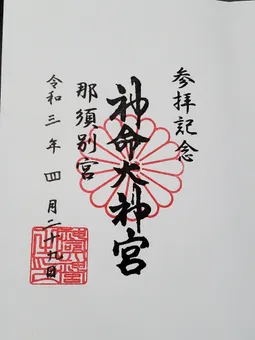 参拝記念
神命大神宮
那須別宮
令和三年四月二十九日